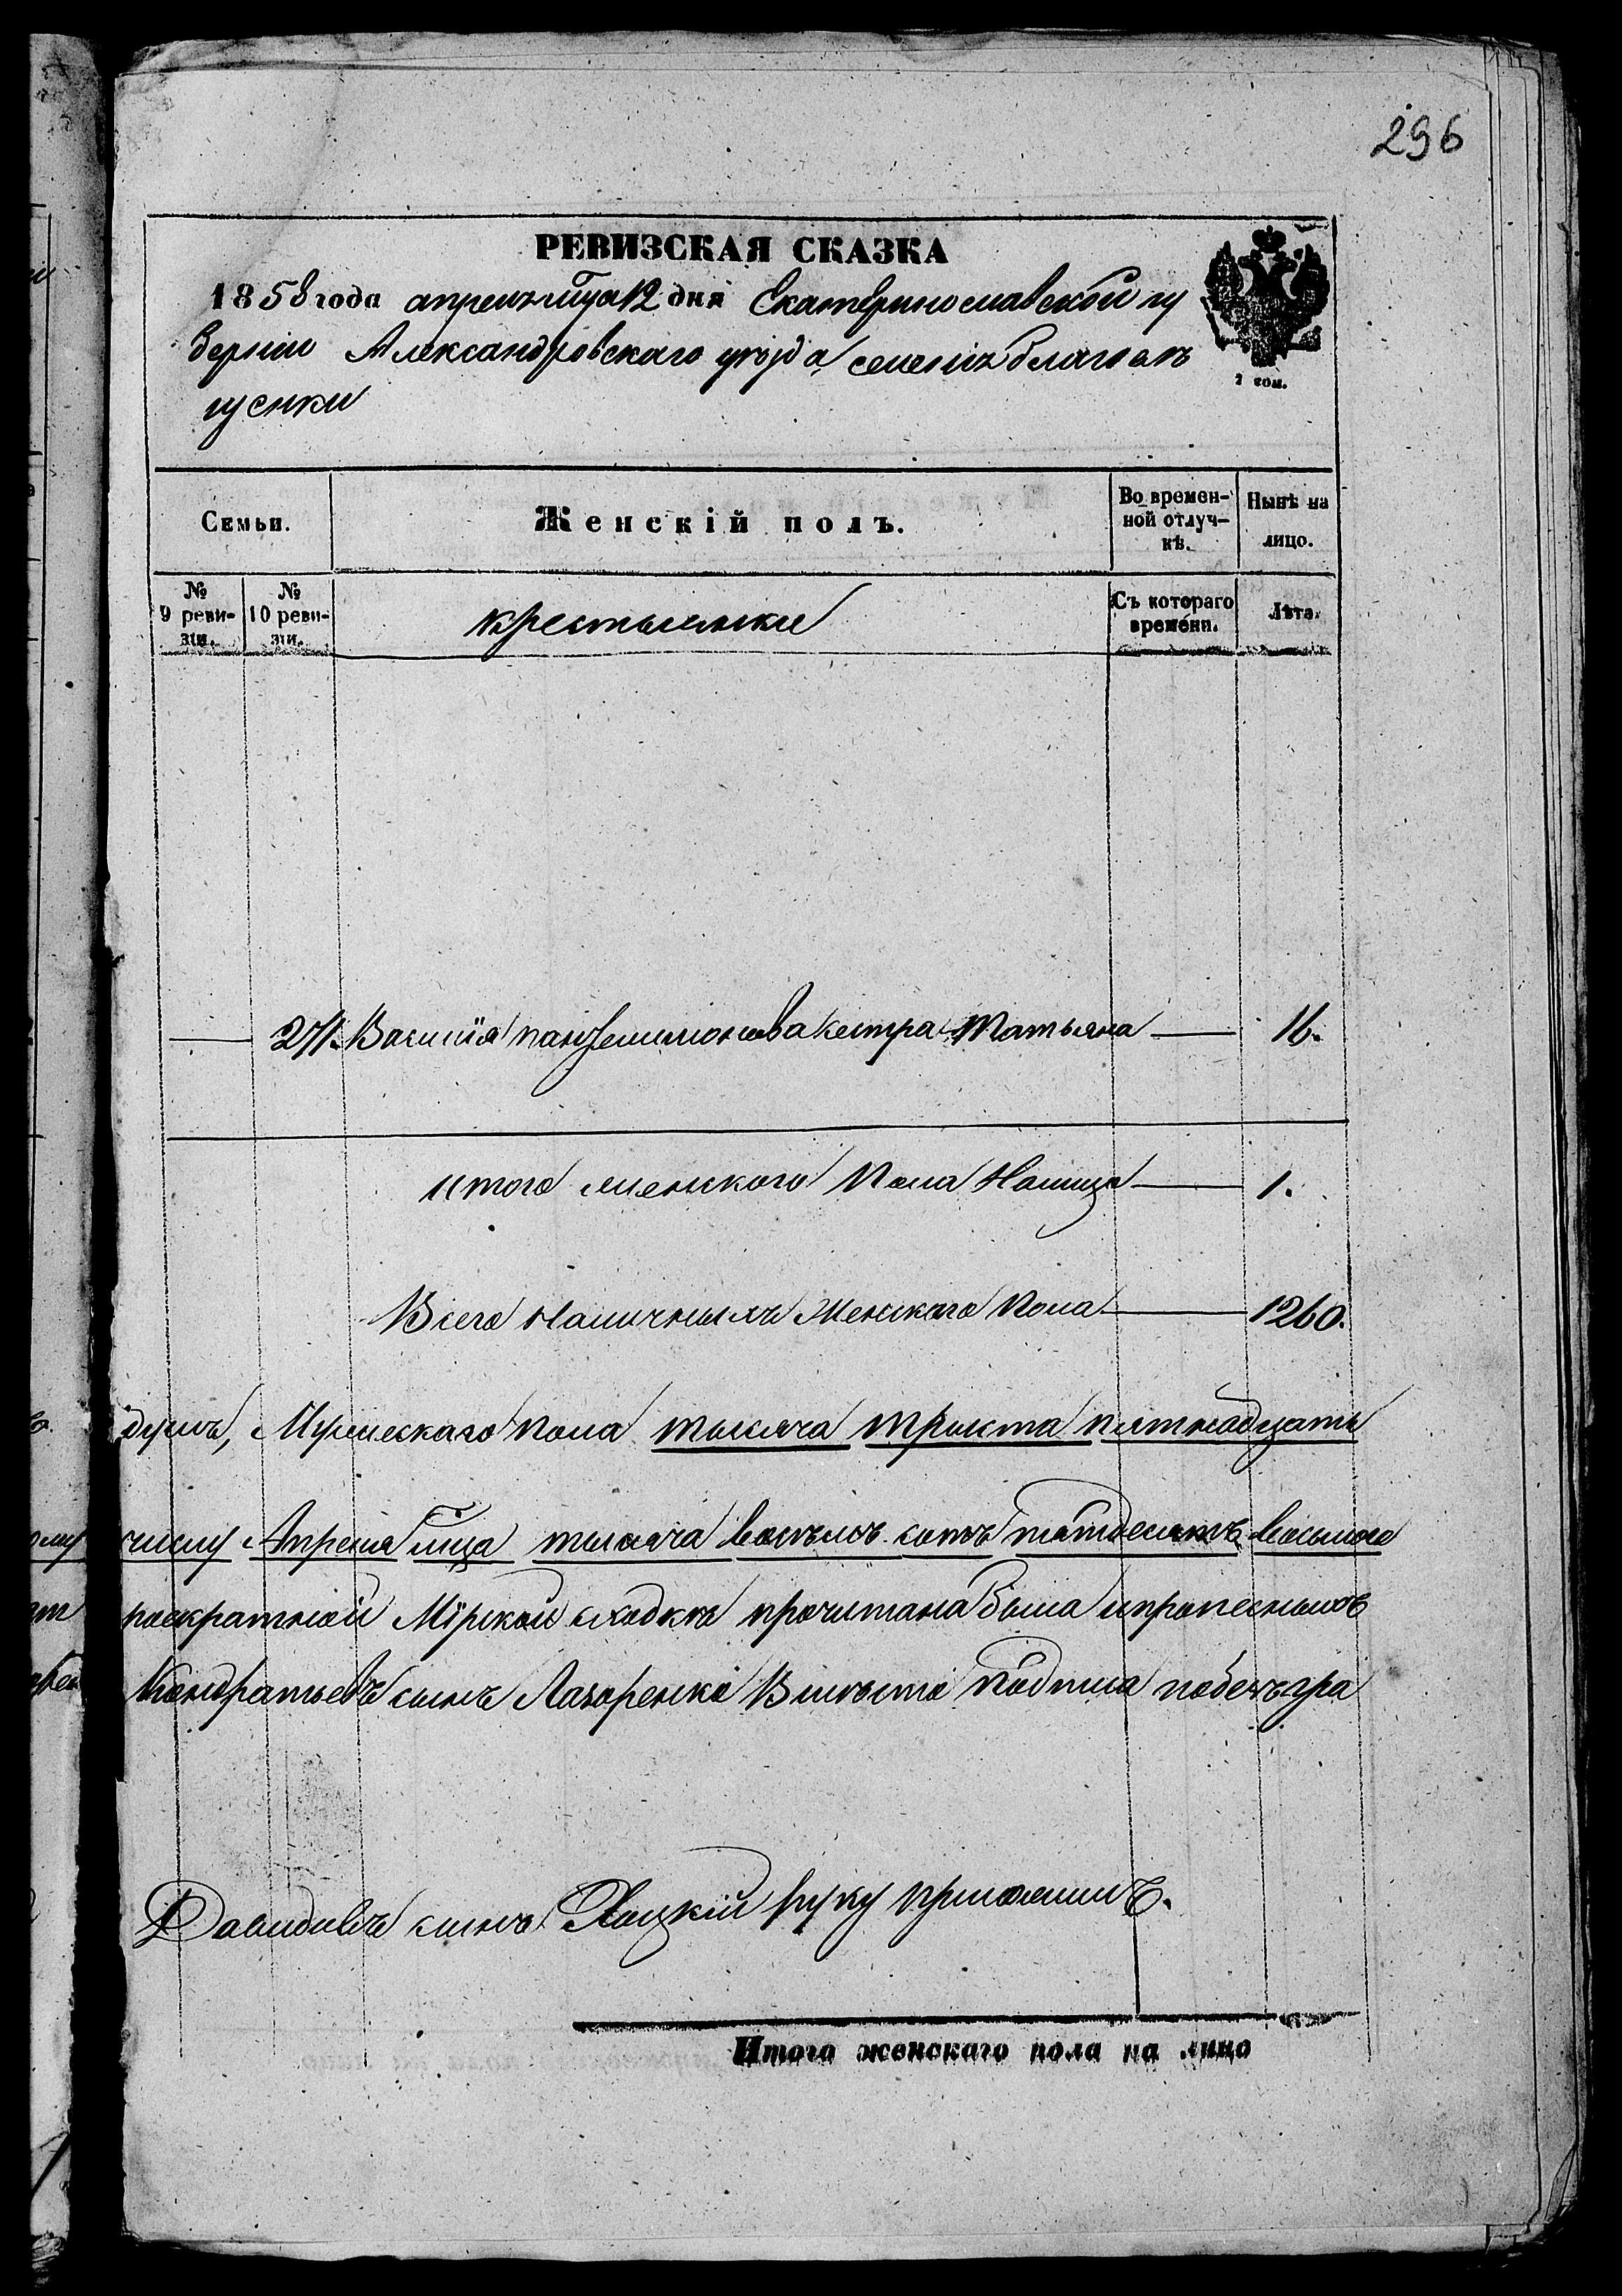 296
РЕВИЗСКАЯ СКАЗКА
1858 года апреля мца 12 дня Екатеринославской гу
берніи Александровскаго уѣзда селенія благовѣ
щенки
Семьи.
Женскій полъ.
Во времен-
ной отлуч-
кѣ.
Нынѣ на
лицо.
№
9 реви-
зіи.
№
10 реви-
зіи.
крестьянки
Съ котораго
времени.
Лѣта.
Василія сестра Татьяна 16.
итого женского Пола Налице 1.
Всего Наличныхъ Женского Пола 1260.
душъ, Мужескаго Пола тысяча триста пятнадцать
числу Апреля мца тысяча восемь сотъ пятдесятъ восьмого
Мірской сходкѣ прочитана была
Кондратьевъ сынъ Лазоренко Вмѣсто
Давидовъ сынъ руку приложилъ.
Итого женскаго пола на лицо